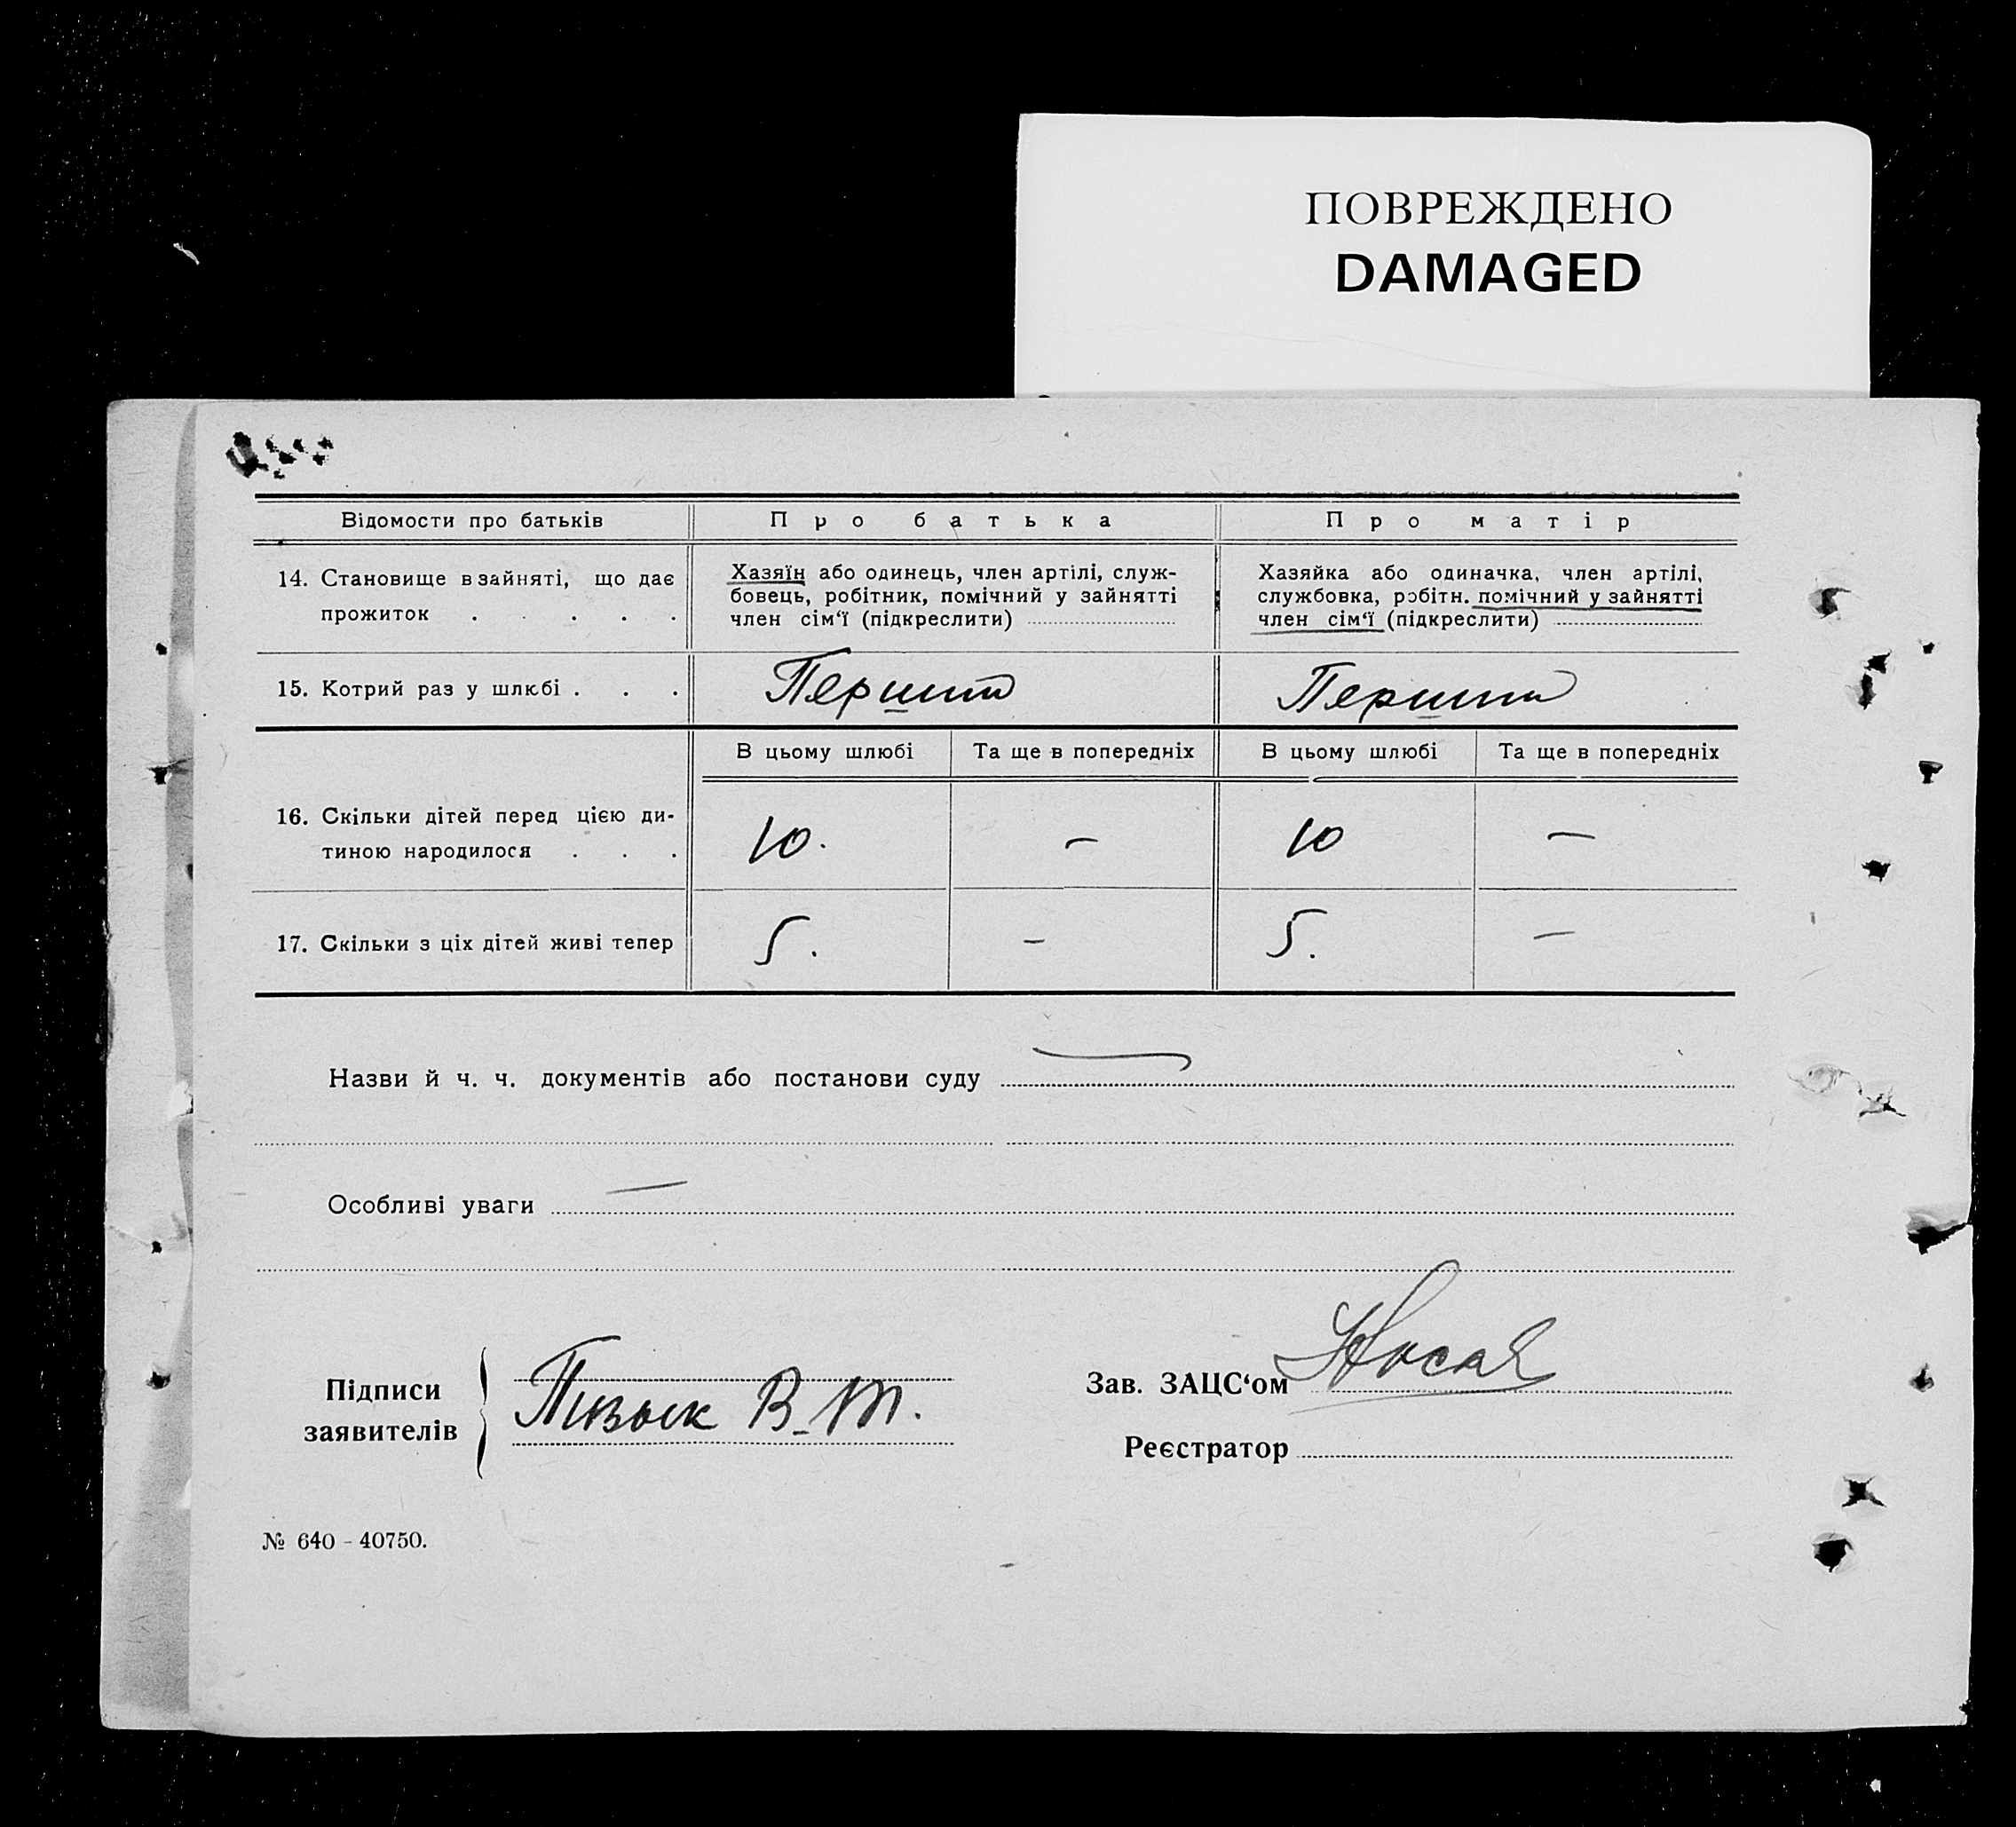 ПОВРЕЖДЕНО
DAMAGED
Відомости про батьків
Про батька
Про матір
14. Становище в зайняті, що дає
прожиток . . . . .
Хазяїн або одинець, член артілі, служ-
бовець, робітник, помічний у зайнятті
член сім‘ї (підкреслити)
Хазяйка або одиначка, член артілі,
службовка, робітн. помічний у зайнятті
член сім‘ї (підкреслити)
15. Котрий раз у шлюбі . . .
Перший
Перший
В цьому шлюбі
Та ще в попередніх
В цьому шлюбі
Та ще в попередніх
16. Скільки дітей перед цією ди-
тиною народилося . . .
10.
–
10
–
17. Скільки з ціх дітей живі тепер
5.
–
5.
–
Назви й ч. ч. документів або постанови суду –
Особливі уваги –
Підписи
заявителів
В. М.
Зав. ЗАЦС‘ом
Реєстратор
№ 640 - 40750.